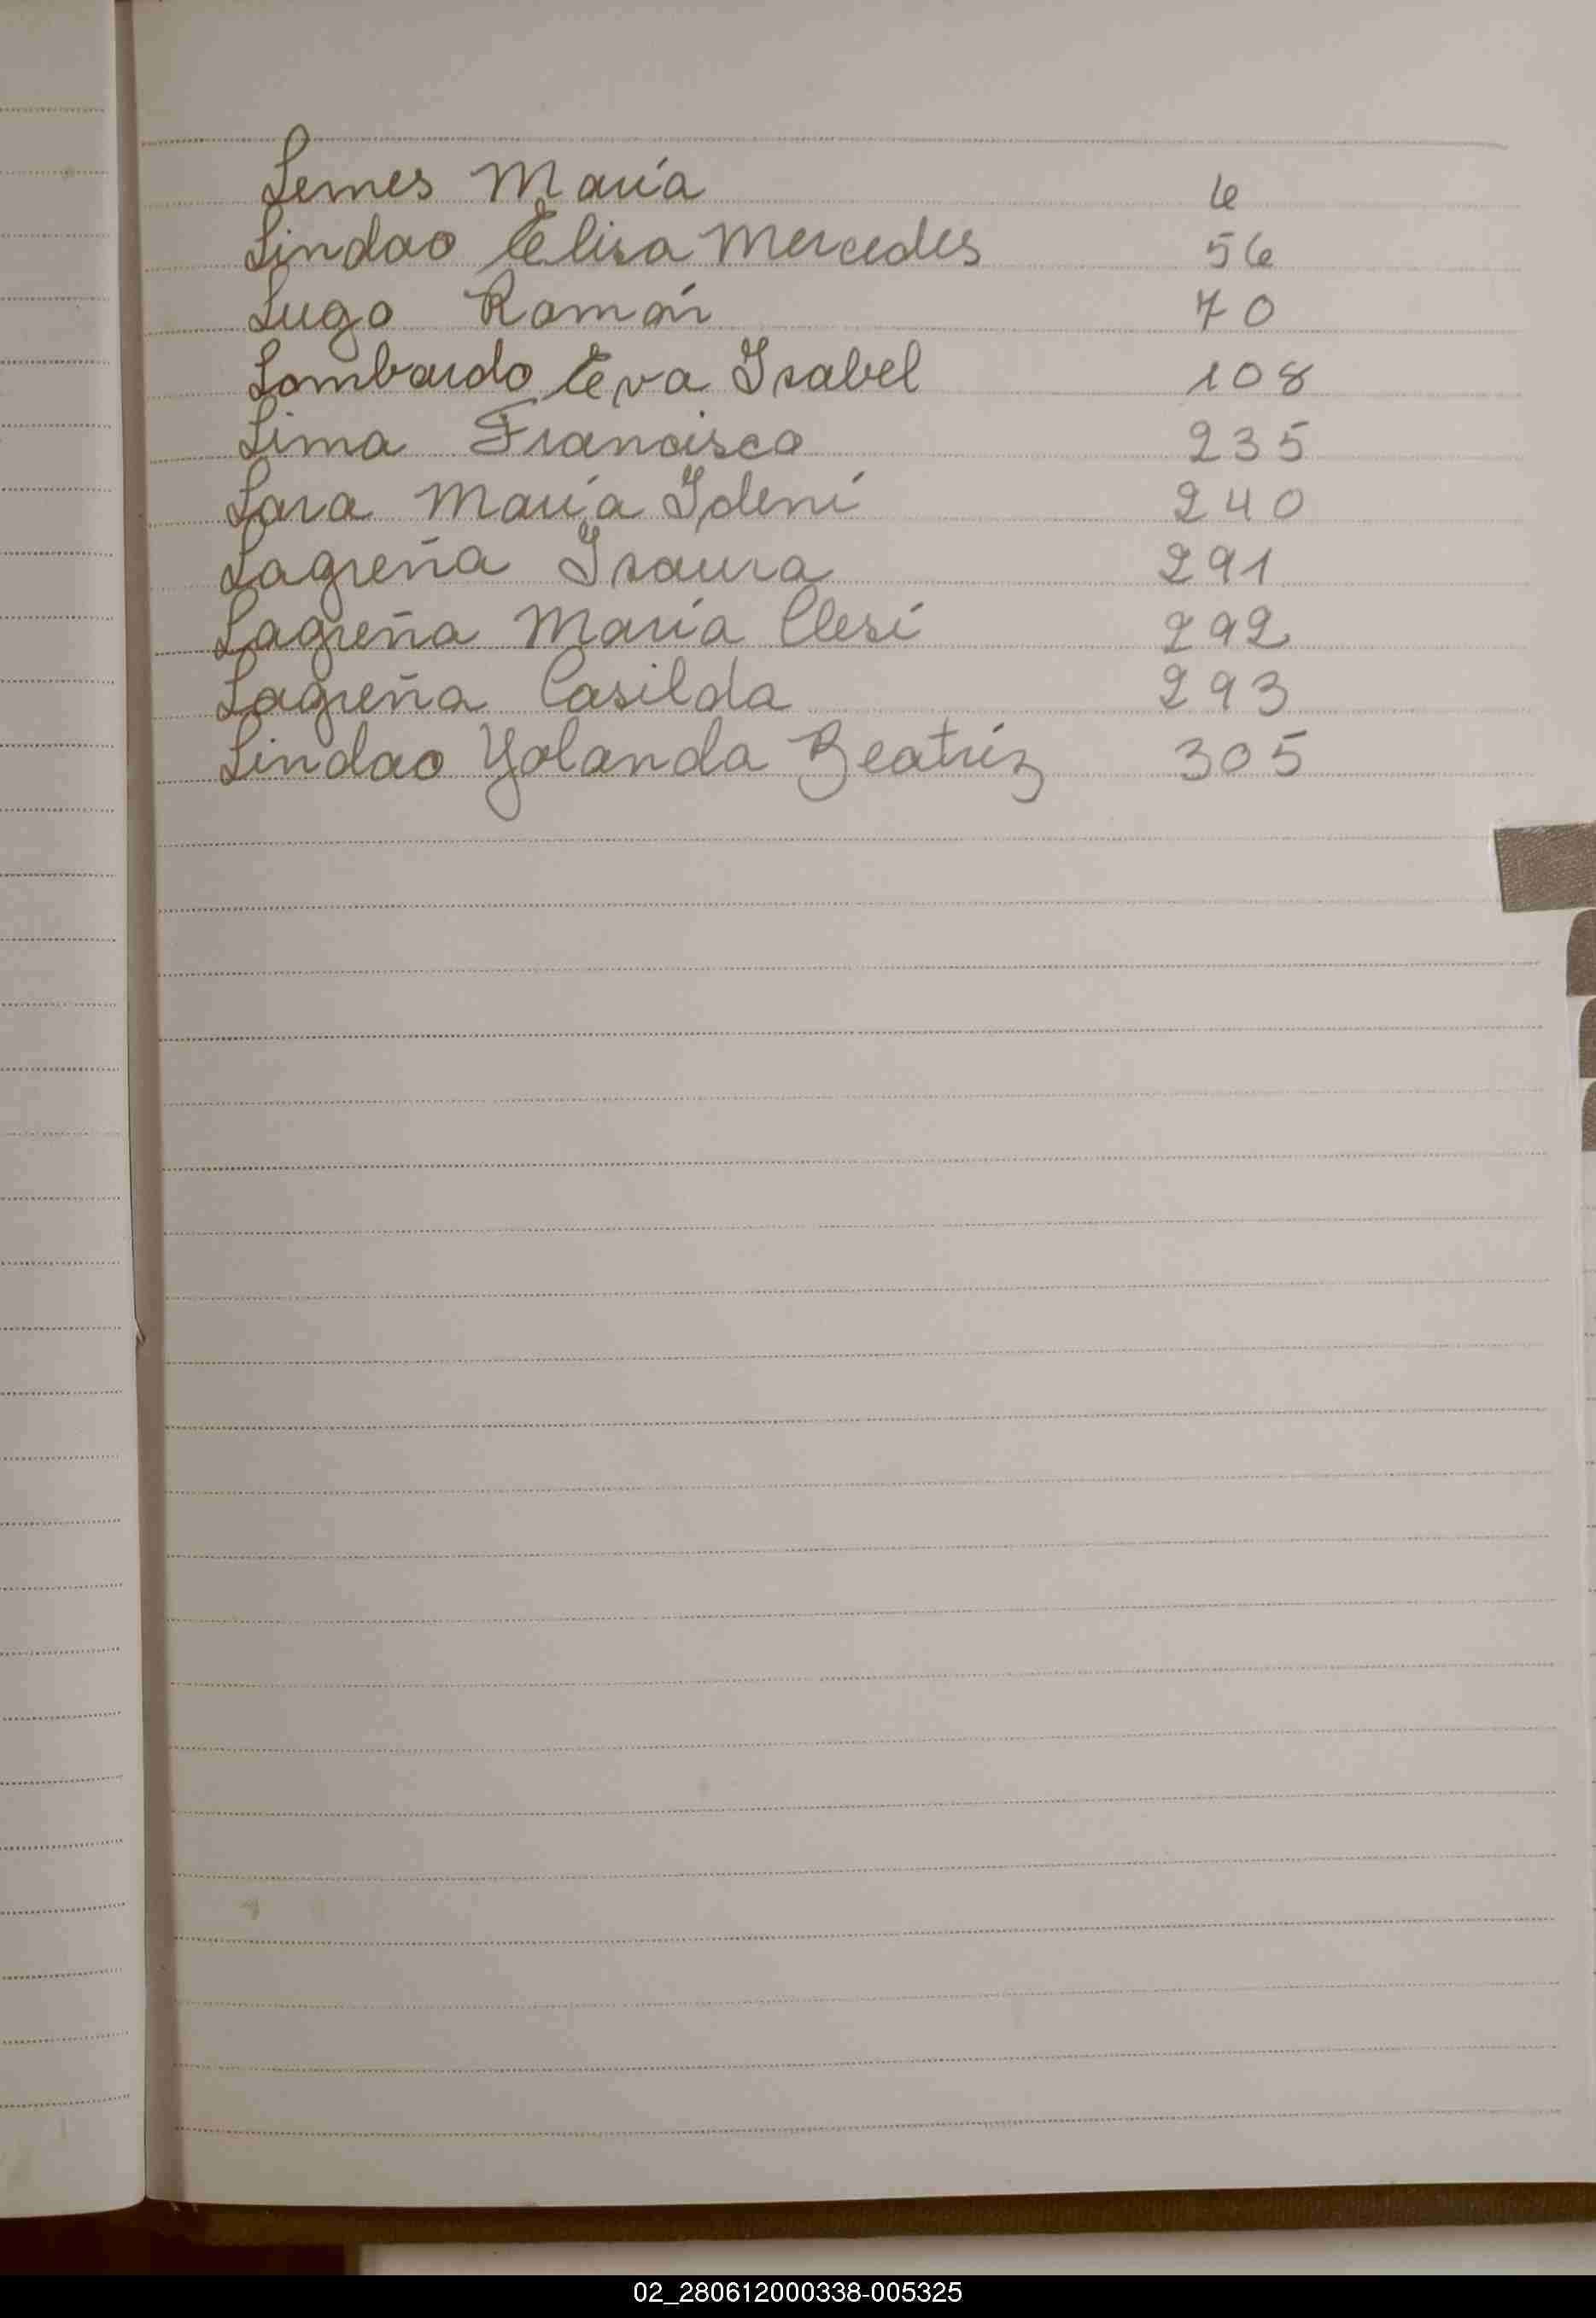 Lemes María 6
Lindao Elisa Mercedes 56
Lugo Ramón 70
Lombardo Eva Isabel 108
Lima Francisco 235
Lara María Ideni 240
Lagreña Isaura 291
Lagreña María Clesi 292
Lagreña Casilda 293
Lindao Yolanda Beatriz 305
02_280612000338-005325